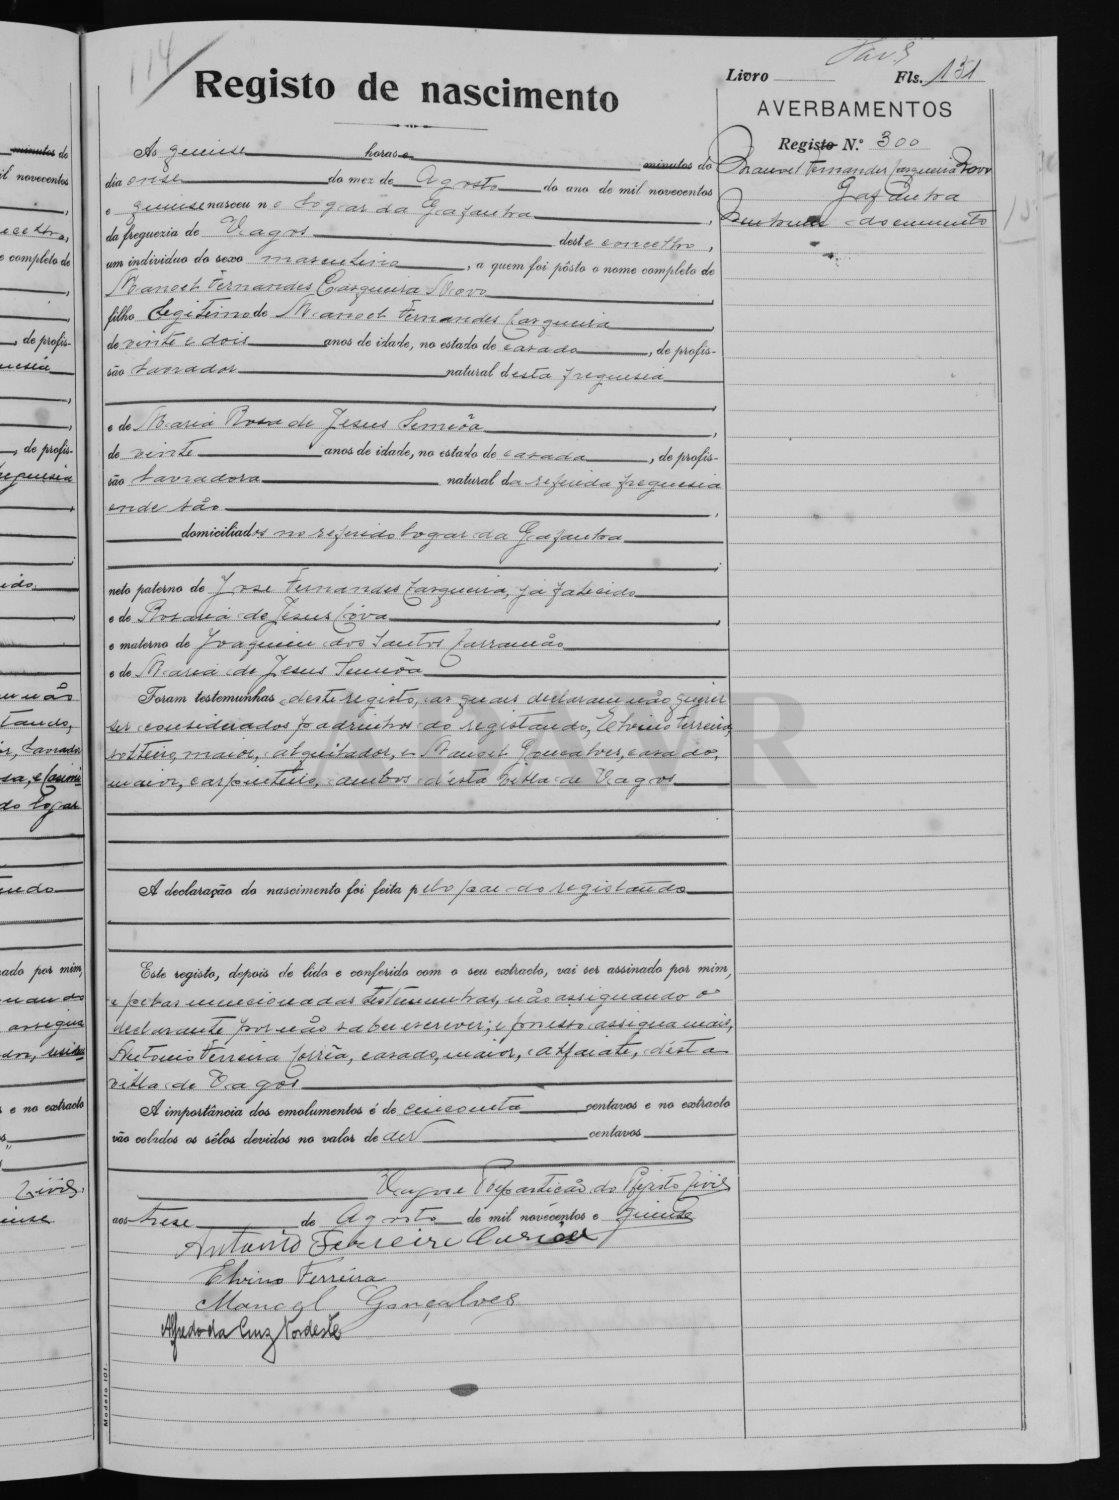 114
Registo de nascimento
Livro Fls. 131
AVERBAMENTOS
Registo N.º 300
Manoel Fernandes Carqueira Novo
Gafanha
documento
Ás quinse horas e minutos do
dia onse do mez de Agosto do ano de mil novecentos
e quinse nasceu no logar da Gafanha,
da freguezia de Vagos deste concelho,
um individuo do sexo masculino, a quem foi pôsto o nome completo de
Manoel Fernandes Carqueira Novo,
filho legitimo de Manoel Fernandes Carqueira,
de vinte e dois anos de idade, no estado de casado, de profis-
são lavrador natural desta freguesia
,
e de Maria Rosa de Jesus Simôa,
de vinte anos de idade, no estado de casada, de profis-
são lavradora natural da referida freguesia
onde são,
domiciliados no referido logar da Gafanha
;
neto paterno de José Fernandes Carqueira, já falecido
e de Rosaria de Jesus Cova,
e materno de Joaquim dos Santos Carramão
e de Maria de Jesus Simôa
Foram testemunhas deste registo, as quais declaram não querer
ser considerados padrinhos do registando, Elvino Ferreira,
solteiro, maior, alquilador, e Manoel Gonçalves, casado,
maior, carpinteiro, ambos desta vila de Vagos
A declaração do nascimento foi feita pelo pae do registando
Este registo, depois de lido e conferido com o seu extracto, vai ser assinado por mim,
e pelas mencionadas testemunhas, não assignando o
declarante por não saber escrever; e por isso assigna mais,
Antonio Ferreira Corrêa, casado, maior, alfaiate, desta
villa de Vagos
A importância dos emolumentos é de cincoenta centavos e no extracto
vão colados os sêlos devidos no valor de dez centavos
Vagos e Repartição do Registo Civil
aos trese de Agosto de mil novecentos e quinse
Antonio Ferreira Curiâa
Elvino Ferreira
Manoel Gonçalves
Alfredo da Cruz Nordeste
Modelo 101.